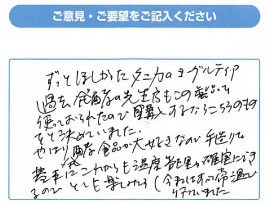 ご意見・ご要望をご記入ください
ずっとほしかったタニカのヨーグルティア
過去、発酵食の先生もこの製品を
使っておられたので購入するならこちらのもの
をと決めていました。
やはり発酵食品が大好きなので手作り
これからも温度管理が確実にでき
るので とても楽しみです(今までは 常温で
作っていました